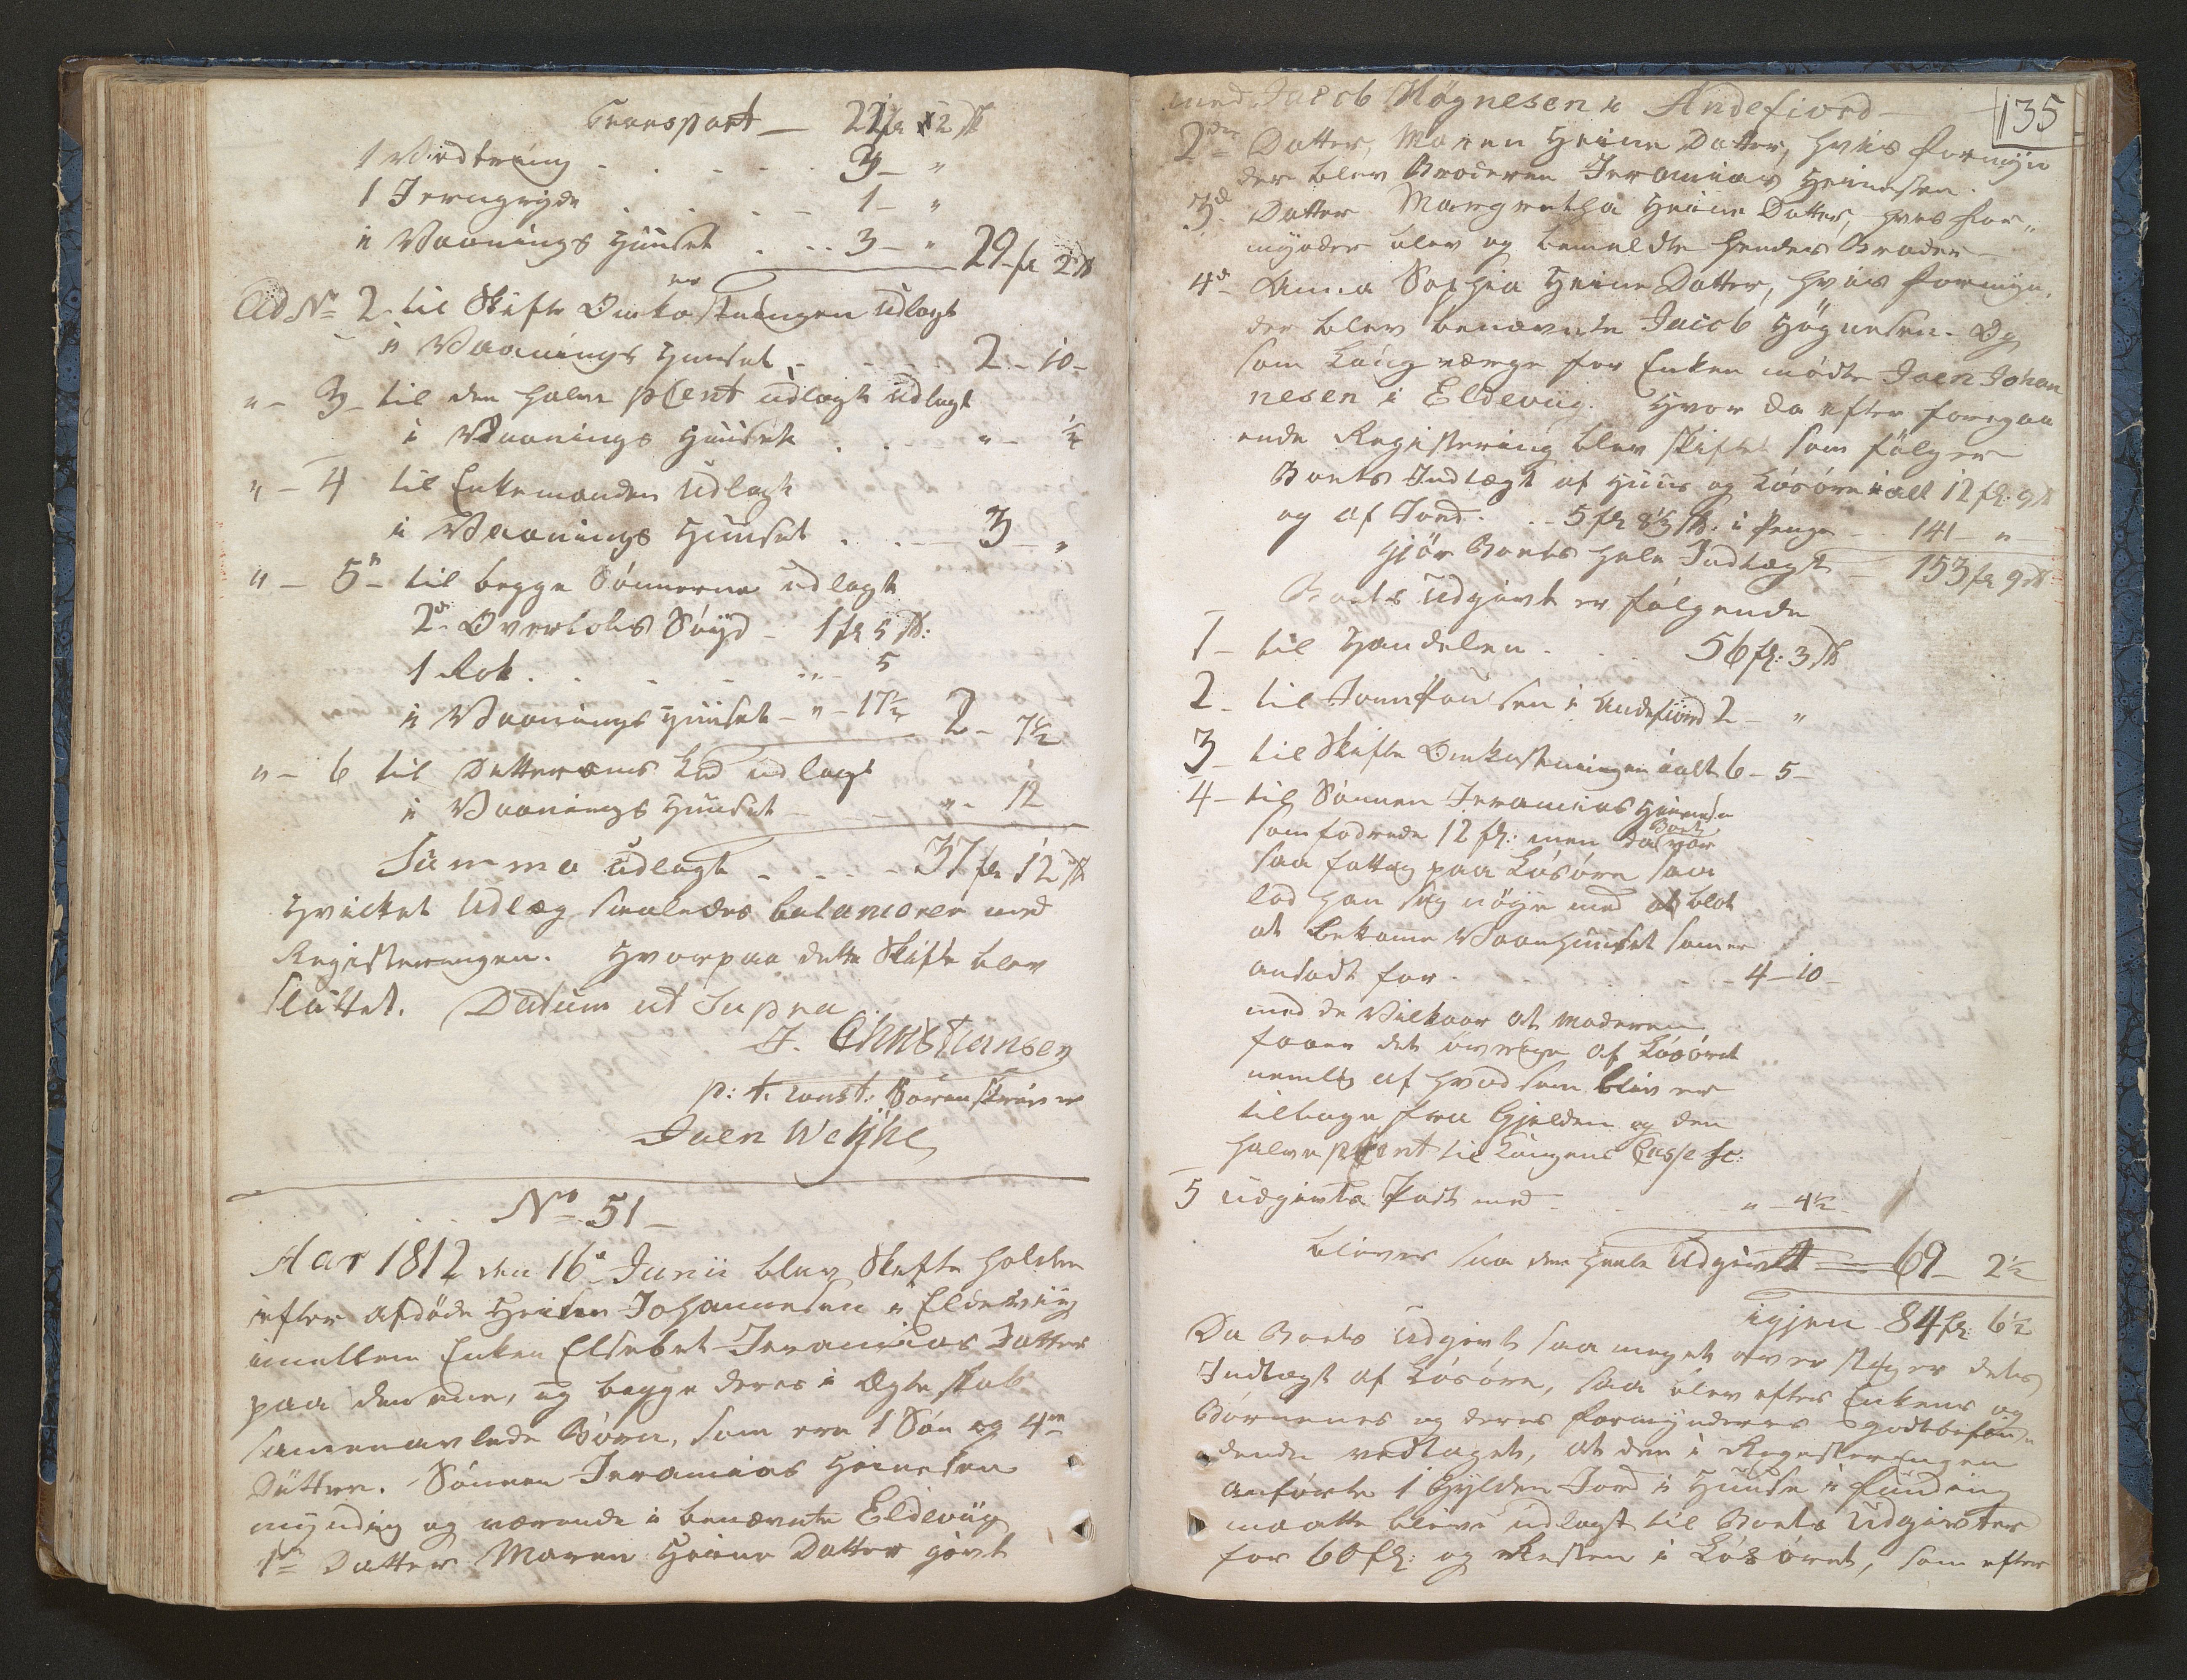 Transport — 22 fl 2 sk
1 Vædring . . . . . 3 — "
1 Jerngryde . . . . 1 — "
i Vaanings Huuset . . . 3 — " 29 fl 2 sk
Ad No 2 til Skifte Omkostningen udlagt
i Vaanings Huuset . . . 2 - 10 -
" - 3 - til den halve pCent udlagt udlagt
i Vaanings Huuset . . . " - ½
" - 4 til Enkemanden udlagt
i Vaanings Huuset . . . 3 "
" - 5 - til begge Sønnerne udlagt
2de Overlobs Søyd - 1 fl 5 sk:
1 Rok . . . . " - 5
i Vaanings Huuset - " - 17½ 2 - 7½
" - 6 til Datterens Lod udlagt
i Vaanings Huuset — " - 12
Summa udlagt . . . - 37 fl 12 sk
Hvilket Udlæg saaledes balancerer med
Registeringen. Hvorpaa dette Skifte blev
sluttet. Datum ut Supra
J. Christiansen
p: t. const: Sorenskriver
Joen Weyhe
No 51 —
Aar 1812 den 16de Junii blev Skifte holden
efter afdøde Heine Johannesen i Eldeviig
imellem Enken Elsebet Jeramias Datter
paa den ene, og begge deres i Ægteskab
sammenavlede Børn, som ere 1 Søn og 4re
Døttre. Sønnen Jeramias Heinesen
myndig og værende i benævnte Eldeviig
1te Datter Maren Heine Datter givt
135
med Jacob Høgnesen i Andefiord —
2den Datter, Maren Heine Datter, hvis Formyn
der blev Broderen Jeramias Heinesen.
3de Datter Margretha Heine Datter, hvis For„
mynder blev og bemeldte hendes Broder —
4de Anna Sophia Heine Datter, hvis Formyn„
der blev benævnte Jacob Høgnesen. Og
som Laugværge for Enken mødte Joen Johan
nesen i Eldeviig. Hvor da efter foregaa
ende Registering blev skiftet som følger
Boets Indtægt af Huus og Løsøre i alt 12 fl: 9 sk
og af Jord . . 5 fl 8⅓ sk. i Penge - . 141 — "
Gjør Boets hele Indtægt — 153 fl 9 sk
Boets Udgivt er følgende
1 - til Handelen . . . 56 fl: 3 sk
2 - til Joen Poulsen i Andefiord 2 - "
3 - til Skifte Omkostningen i alt 6 - 5 -
4 - til Sønnen Jeramias Heinesen
som fodrede 12 fl: men da Boet var
saa fattig paa Løsøre saa
lod han sig nöje med at blot
at bekomme Vaanhuuset som er
ansadt for . . . . . - 4 - 10 -
med de Vilkaar at Moderen
faaer det øvrige af Løsøret
nemlig af hvad som bliver
tilbage fra Gjelden og den
halve pCent til Kongens Casse sc:
5 Udgivts Post med - . " - 4½
bliver saa den heele Udgivt — 69 - 2½
igjen 84 fl: 6½
Da Boets Udgivt saa meget overstiger dets
Indtægt af Løsøre, saa blev efter Enkens og
Børnenes og deres Formynderes godtbefin„
dende vedtaget, at den i Registeringen
anførte 1 Gylden Jord i Huuse i Funding
maatte blive udlagt til Boets Udgivter
for 60 fl: og Resten i Løsøret, som efter